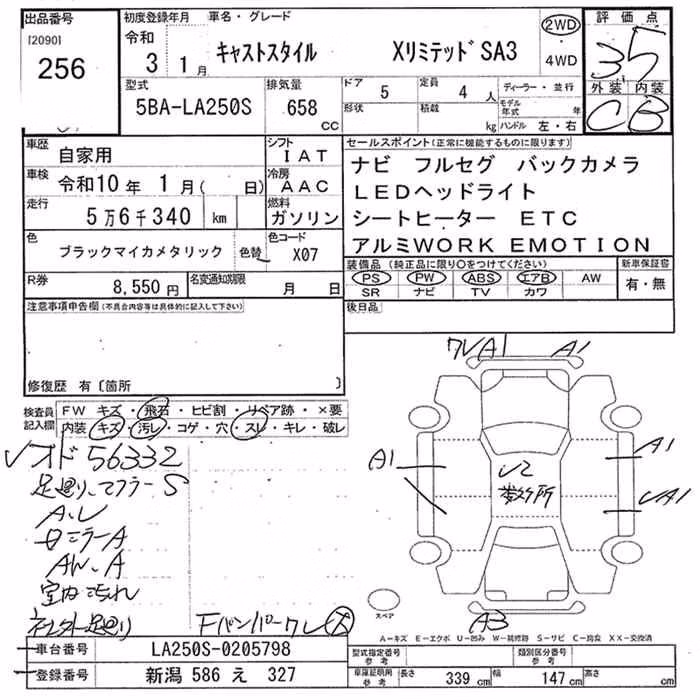 出品番号
[2090]
256
初度登録年月 車名・グレード
令和 3 1月 キャストスタイル XリミテッドSA3
2WD
・
4WD
評価点
3.5
外装 内装
C B
型式 5BA-LA250S
排気量 658 cc
ドア 5
形状
定員 4人
積載 kg
ディーラー・並行
モデル年式 年
ハンドル 左・右
車歴 自家用
シフト IAT
車検 令和10年 1月( 日)
冷房 AAC
走行 5万6千340 km
燃料 ガソリン
色 ブラックマイカメタリック 色替
色コード X07
R券 8,550円
名変通知期限 月 日
セールスポイント(正常に機能するものに限ります)
ナビ フルセグ バックカメラ
LEDヘッドライト
シートヒーター ETC
アルミWORK EMOTION
装備品(純正品に限り○をつけてください)
新車保証書
PS PW ABS エアB AW
SR ナビ TV カワ
有・無
後日品
注意事項申告欄(不具合内容等は具体的に記入して下さい)
修復歴 有〔箇所 〕
検査員記入欄
FW キズ・飛石・ヒビ割・リペア跡・×要
内装 キズ・汚レ・コゲ・穴・スレ・キレ・破レ
オド56332
足廻り、マフラーS
A、U
ミラーA
AW、A
室内汚れ
社外足廻り
FバンパーワレX
ワレA1
A1
A1
A1
UA1
U2
数ヶ所
A3
スペア
A-キズ E-エクボ U-凹み W-補修跡 S-サビ C-腐食 XX-交換済
車台番号 LA250S-0205798
登録番号 新潟 586 え 327
型式指定番号
参考
類別区分番号
参考
車庫証明用
参考
長さ 339 cm
幅 147 cm
高さ cm